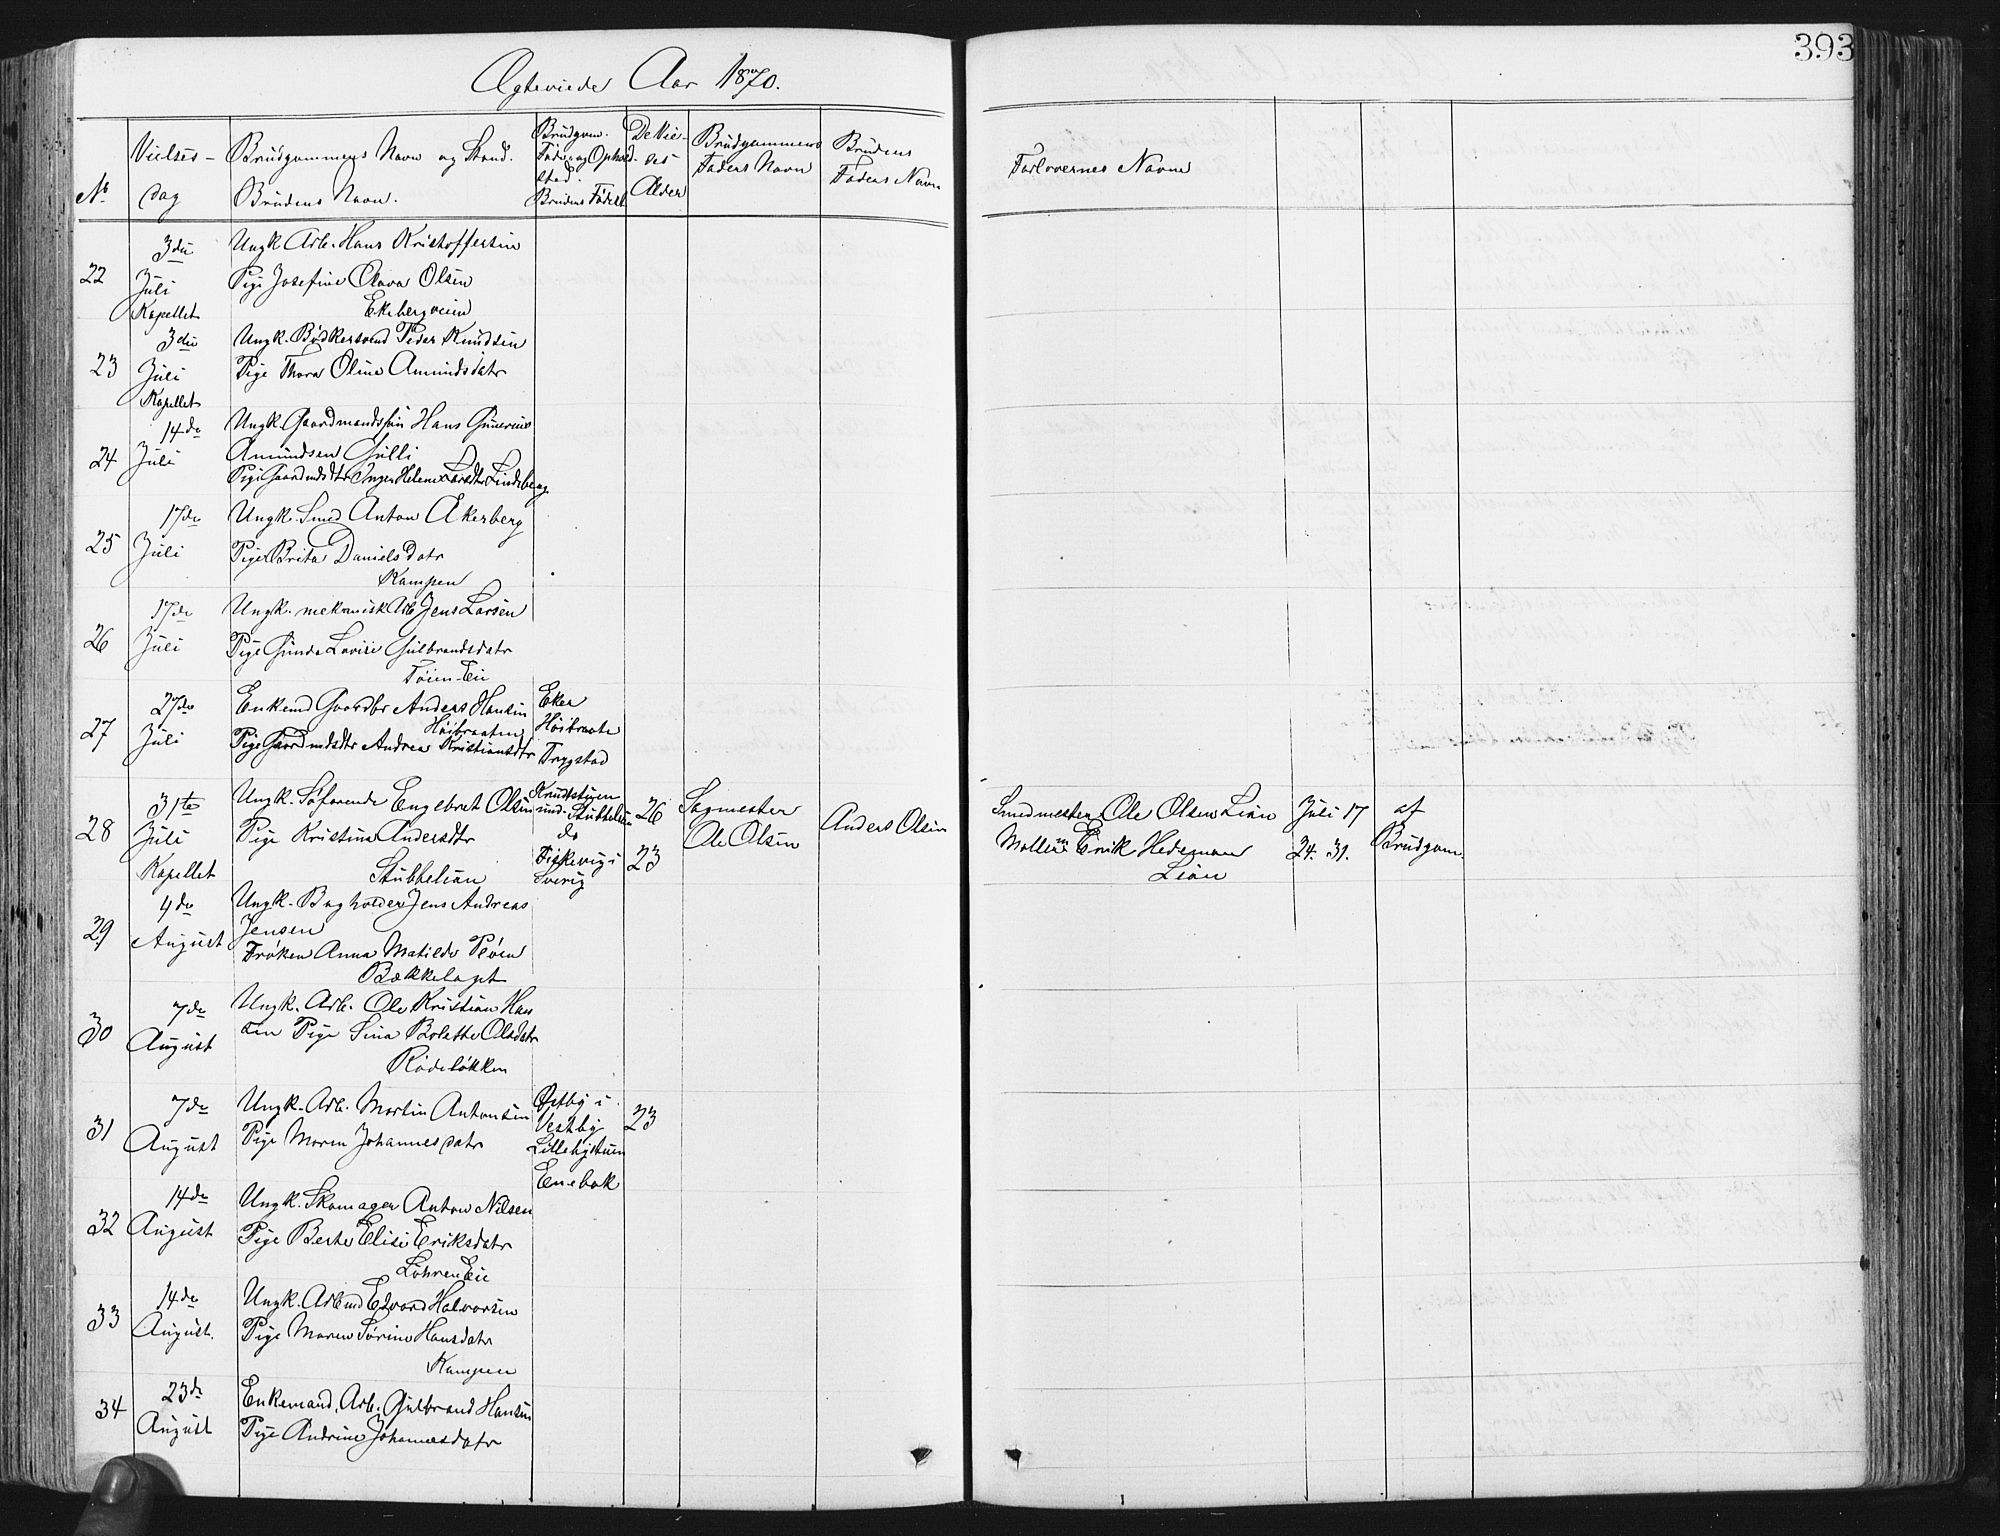 Ægteviede Aar 1870.
393
No
Vielses-
dag
Brudgommens Navn og Stand.
Brudens Navn.
Brudgom.
Føde og Ophold-
sted.
Brudens Fødest
De Vie-
des
Alder
Brudgommens
Faders Navn
Brudens
Faders Navn
Forlovernes Navne
22
3die
Juli
Kapellet
Ungk. Arb. Hans Kristoffersen
Pige Josefine Olava Olsen
Ekebergveien
23
3die
Juli
Kapellet
Ungk. Bødkersvend Peder Knudsen
Pige Thora Oline Amundsdatr
24
14de
Juli
Ungk. Gaardmandssøn Hans Gunerius
Amundsen Gulli
Pige Gaardmdsdtr Inger Helene Larsdtr Lindeberg
25
17de
Juli
Ungk. Smed Anton Akerberg
Pige Brita Danielsdatr
Kampen
26
17de
Juli
Ungk. mekanisk Arb. Jens Larsen
Pige Gunda Lovise Gulbrandsdatr
Tøien-Eie
27
27de
Juli
Enkemd Gaardbr Anders Hansen
Høibraaten
Pige Gaardmdsdtr Andrea Kristiansdtr
Eker
Høibraate
Trygstad
28
31te
Juli
Kapellet
Ungk. Søfarende Engebret Olsen
Pige Kristine Andersdtr
Stubbelien
Knudstuen
und. Stubbelien
do
Fiskevig i
Sverig
26
23
Sagmester
Ole Olsen
Anders Olsen
Smedmester Ole Olsen Lien
Møller Erik Hedeman
Lien
Juli 17
24. 31.
af
Brudgom.
29
4de
August
Ungk. Bogholder Jens Andreas
Jensen
Frøken Anna Matilde Pløen
Bækkelaget
30
7de
August
Ungk. Arb. Ole Kristian Han
sen Pige Sina Bolette Olsdatr
Rodeløkken
31
7de
August
Ungk. Arb. Martin Antonsen
Pige Maren Johannesdatr
Østby i
Vestby
Lillebystuen
Enebak
23
32
14de
August
Ungk. Skomager Anton Nilsen
Pige Berte Elise Eriksdatr
Løhren Eie
33
14de
August.
Ungk. Arbmd Edvard Halvorsen
Pige Maren Sørine Hansdatr
Kampen
34
23de
August
Enkemand, Arb. Gulbrand Hansen
Pige Andrine Johannesdatr